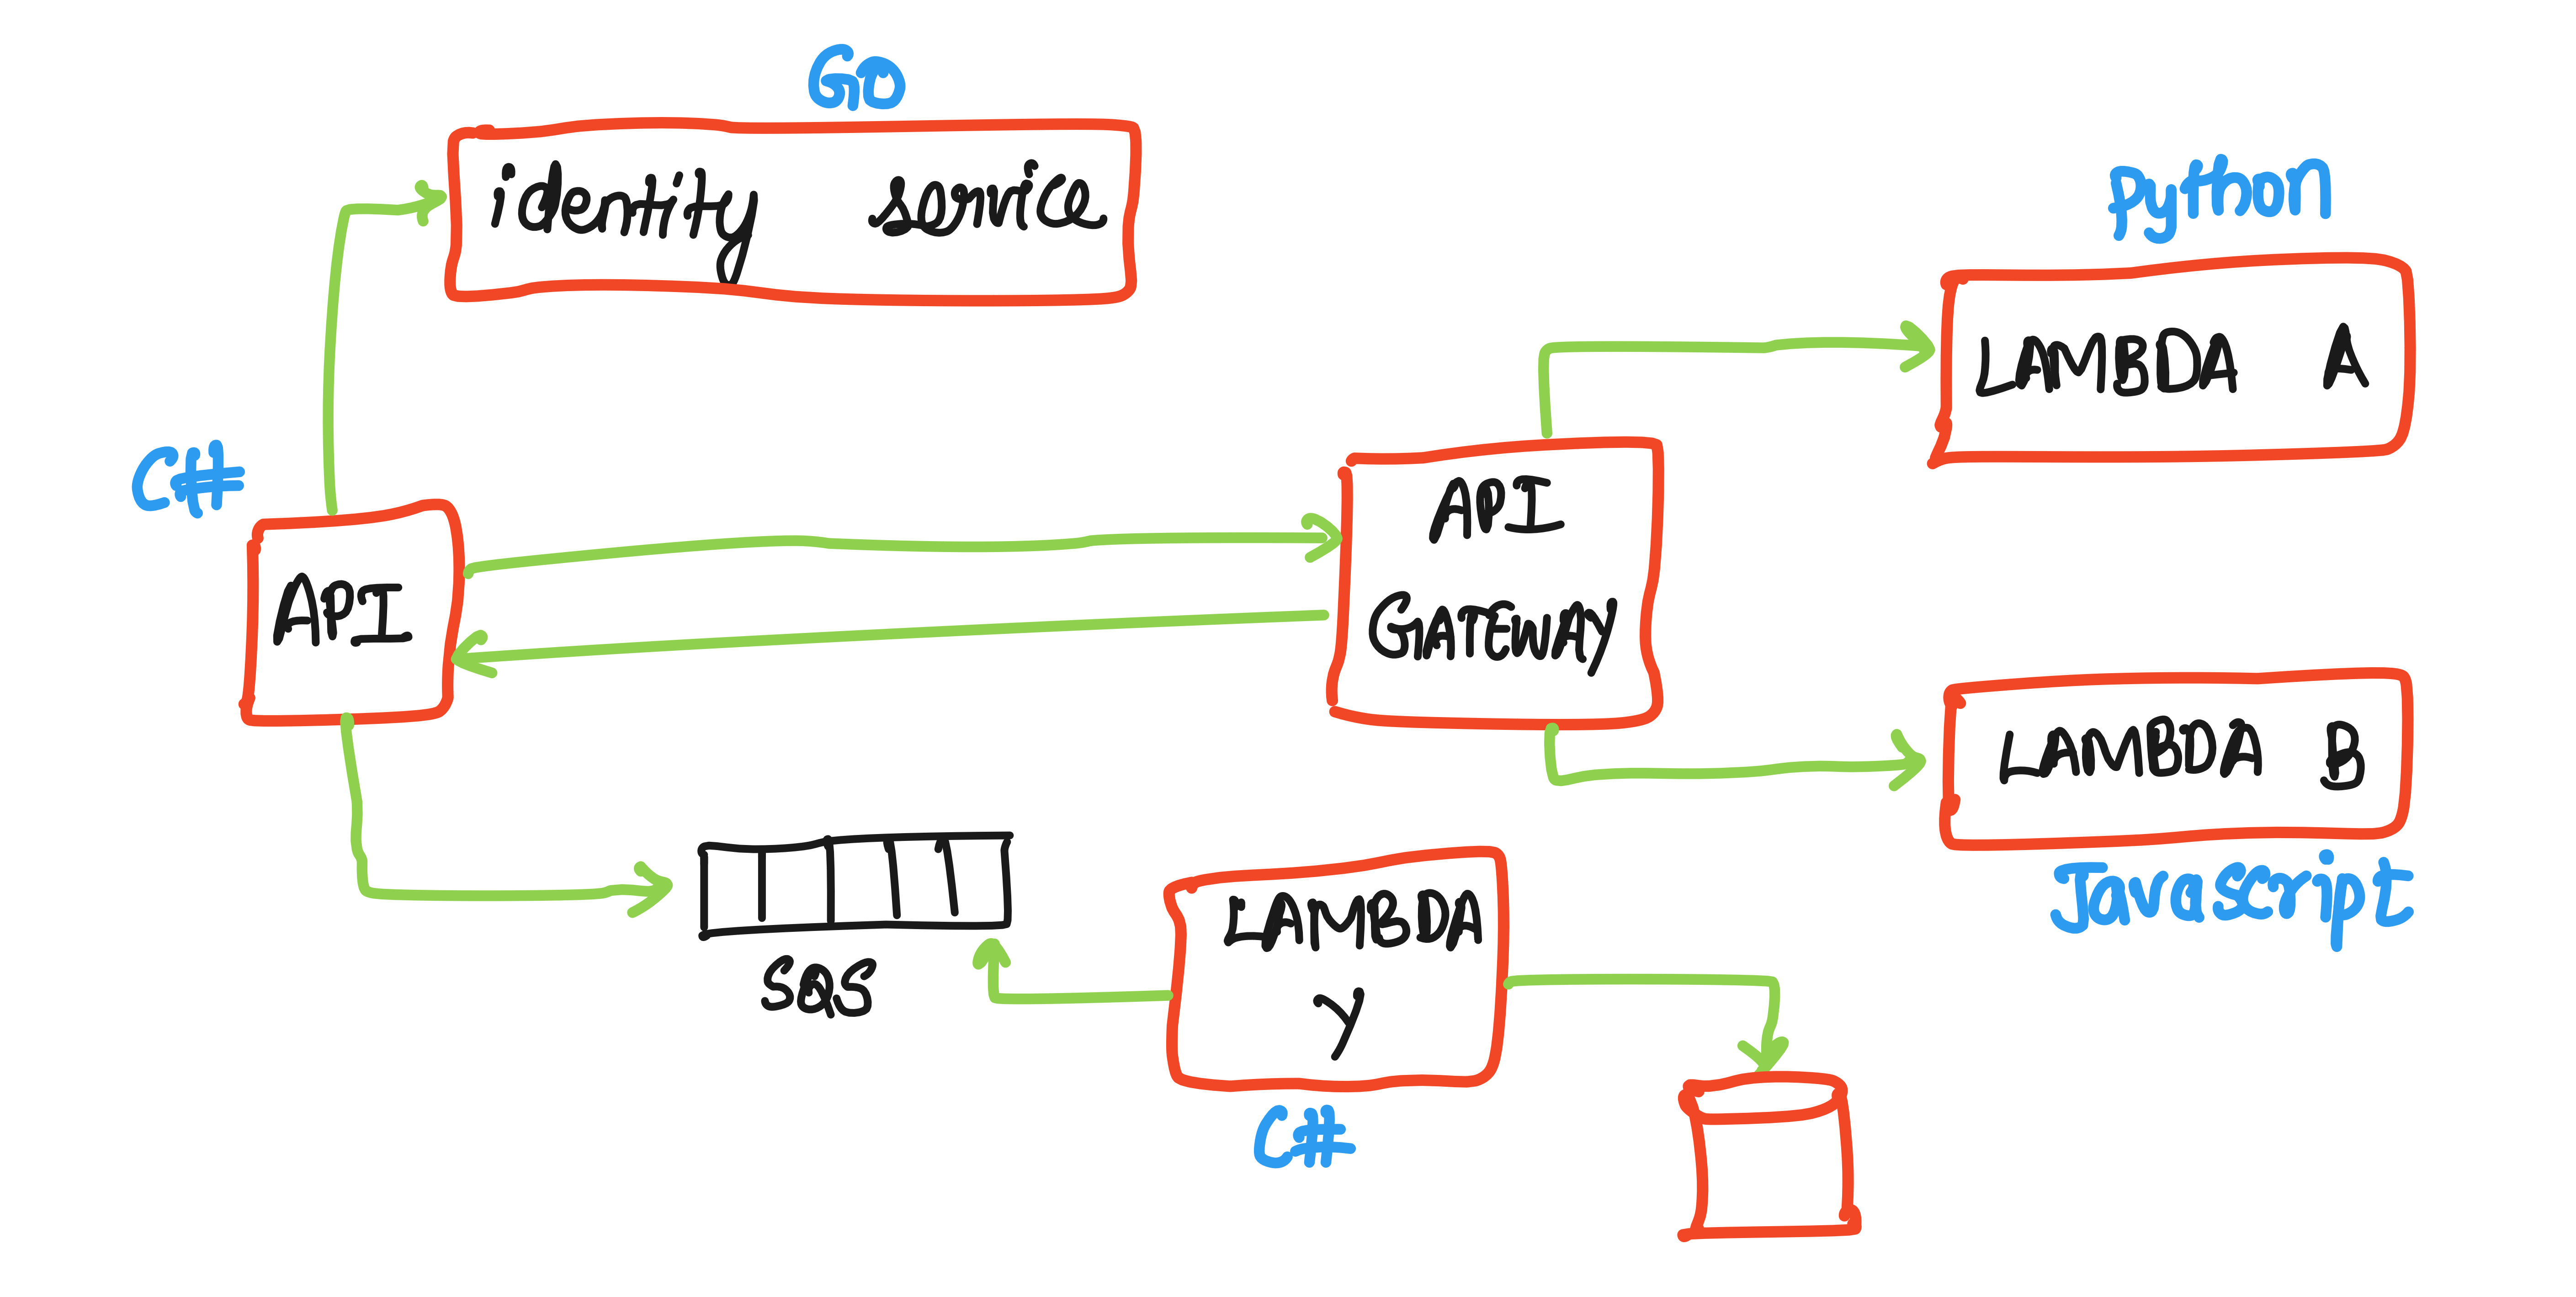 GO
identity service
Python
LAMBDA A
C#
API
API
GATEWAY
LAMBDA B
Javascript
SQS
LAMBDA
Y
C#